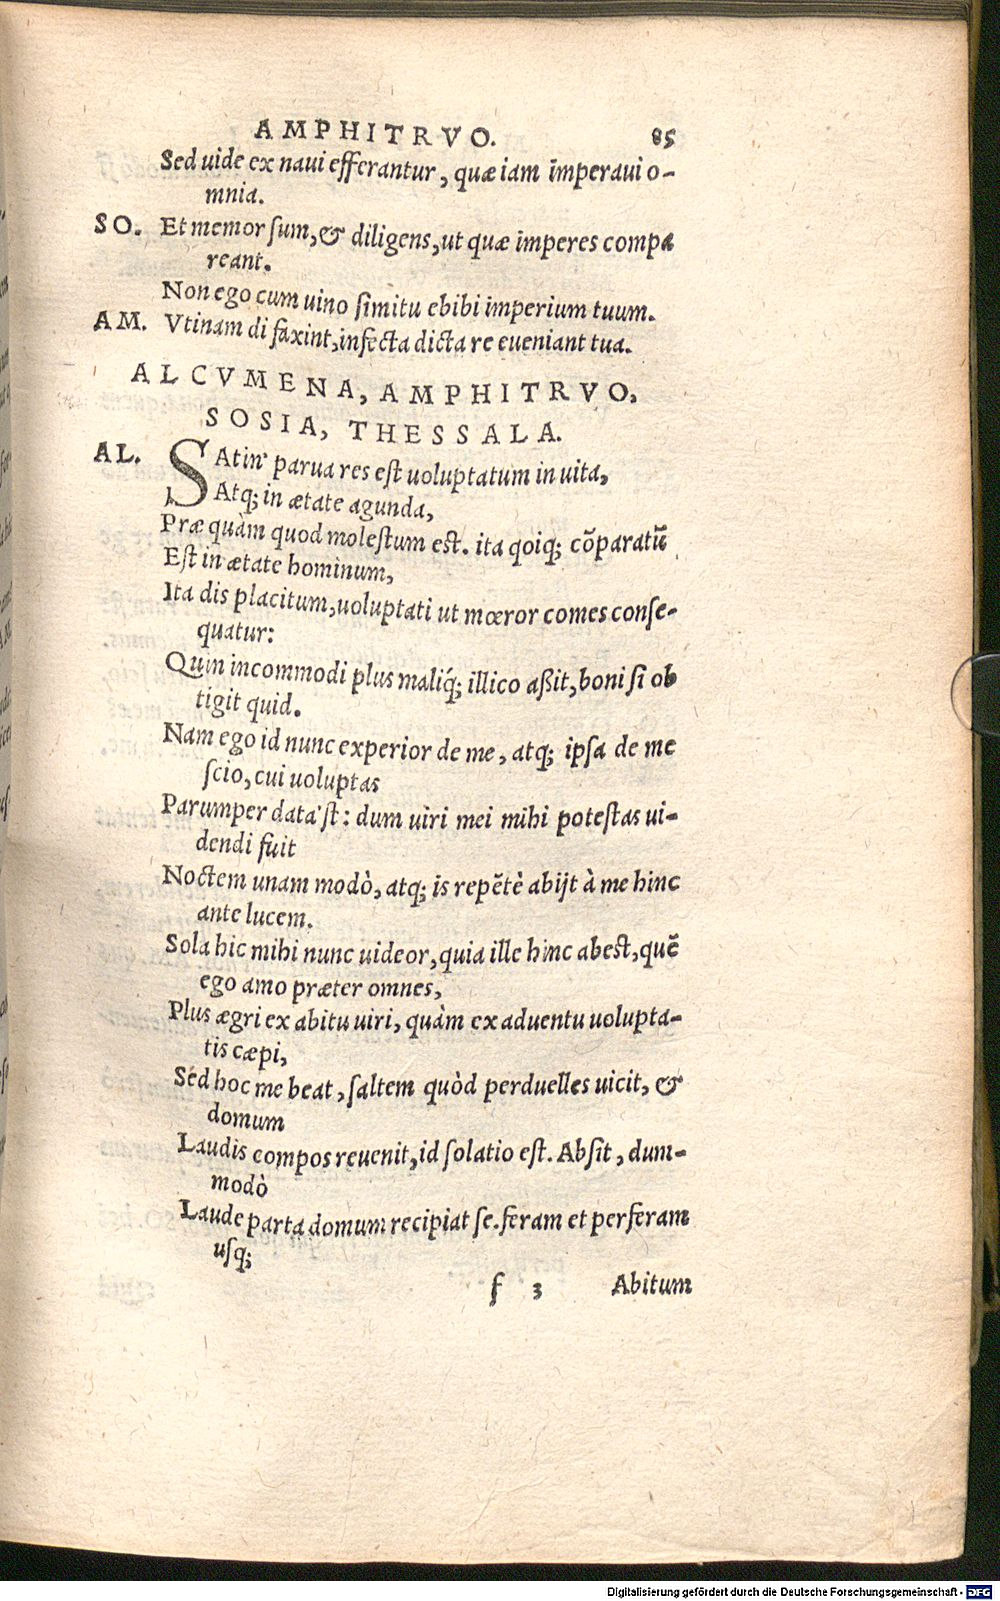 AMPHITRVO. 85
Sed uide ex naui efferantur, quæ iam īmperaui o-
mnia.
SO. Et memor ſum, & diligens, ut quæ īmperes compa
reant.
Non ego cum uino ſimitu ebibi imperium tuum.
AM. Vtinam di faxint, infecta dicta re eueniant tua.
ALCVMENA, AMPHITRVO,
SOSIA, THESSALA.
AL. SAtin' parua res eſt uoluptatum in uita,
Atq; in ætate agunda,
Præ quàm quod moleſtum eſt. ita qoiq; cōparatū
Eſt in ætate hominum,
Ita dis placitum, uoluptati ut mœror comes conſe-
quatur:
Quin incommodi plus maliq́; illico aßit, boni ſi ob
tigit quid.
Nam ego id nunc experior de me, atq; ipſa de me
ſcio, cui uoluptas
Parumper data'ſt: dum uiri mei mihi poteſtas ui-
dendi fuit
Noctem unam modò, atq; is repētè abijt à me hinc
ante lucem.
Sola hic mihi nunc uideor, quia ille hinc abeſt, quē
ego amo præter omnes,
Plus ægri ex abitu uiri, quàm ex aduentu uolupta-
tis cæpi,
Sed hoc me beat, ſaltem quòd perduelles uicit, &
domum
Laudis compos reuenit, id ſolatio eſt. Abſit, dum-
modò
Laude parta domum recipiat ſe. feram et perferam
uſq;
f 3 Abitum
Digitalisierung gefördert durch die Deutsche Forschungsgemeinschaft - DFG